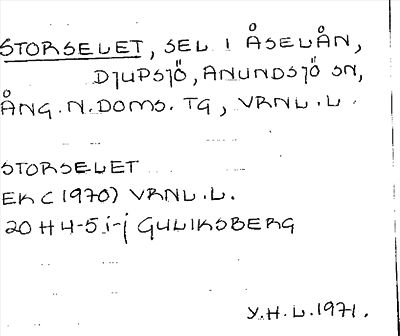 STORSELET, SEL I ÅSELÅN,
DJUPSJÖ, ANUNDSJÖ SN,
ÅNG. N. DOMS. TG, VRNL. L.
STORSELET
EK C (1970) VRNL. L.
20 H 4-5 i-j GULIKSBERG
Y. H. L. 1971.